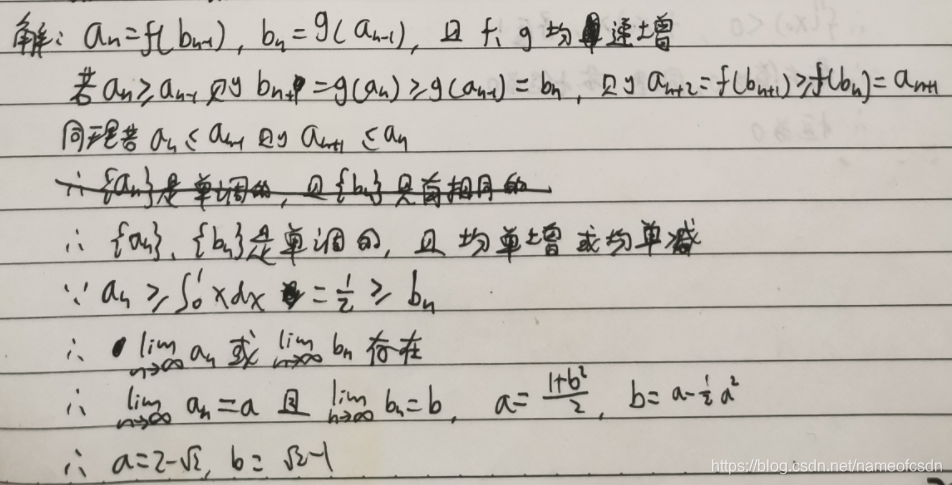 解：aₙ=f(bₙ₋₁)，bₙ=g(aₙ₋₁)，且 f、g 均递增
若aₙ≥aₙ₋₁ 则 bₙ₊₁=g(aₙ)≥g(aₙ₋₁)=bₙ，则 aₙ₊₂=f(bₙ₊₁)≥f(bₙ)=aₙ₊₁
同理若 aₙ≤aₙ₋₁ 则 aₙ₊₁≤aₙ
∴ {aₙ}是单调的，且{bₙ}具有相同的
∴ {aₙ}、{bₙ}是单调的，且均单增或均单减
∵ aₙ≥∫₀¹xdx=½≥bₙ
∴ lim n→∞ aₙ 或 lim n→∞ bₙ 存在
∴ lim n→∞ aₙ=a 且 lim n→∞ bₙ=b，a=(1+b²)/2，b=a-½a²
∴ a=2-√2，b=√2-1
https://blog.csdn.net/nameofcsdn